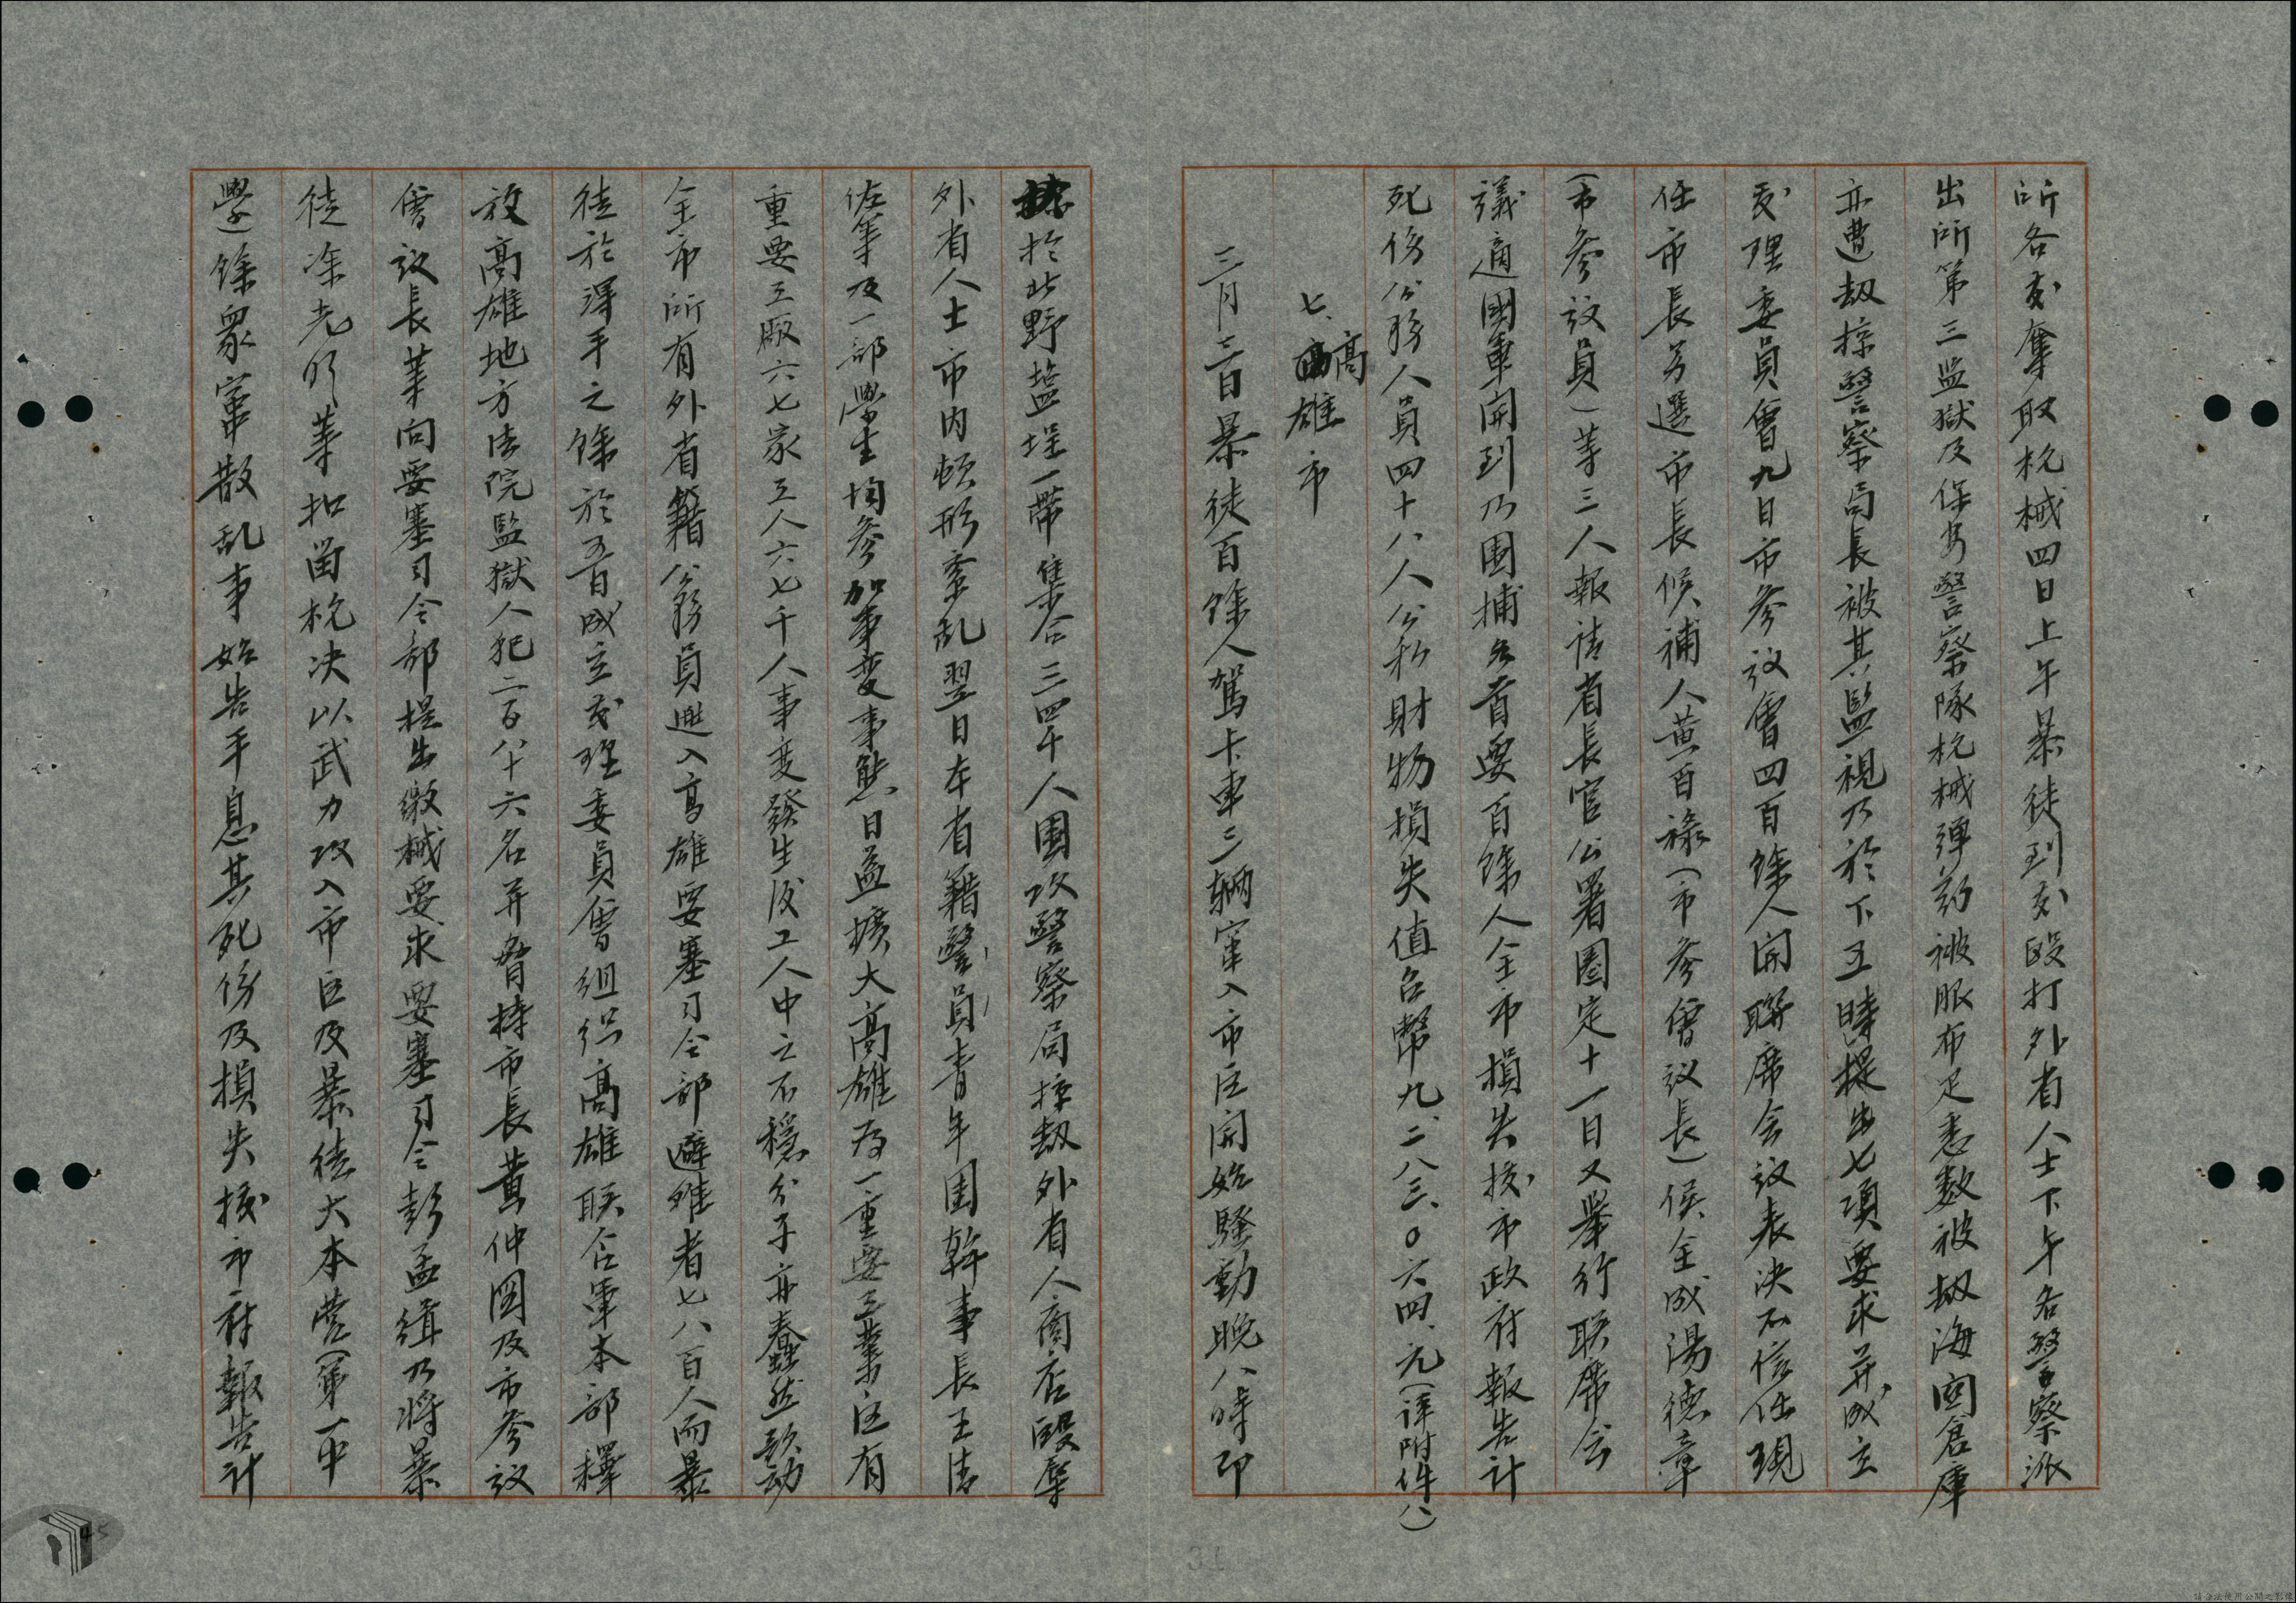 所各處奪取枪械四日上午暴徒到處毆打外省人士下午各警察派
出所第三监獄及保安警察隊枪械弹药被服布疋悉数被劫海関倉庫
亦遭劫掠警察局長被其監視乃於下五時提出七項要求并成立
處理委員會九日市参议會四百餘人開聯席会议表决不信任現
任市長另選市長候補人黄百祿(市参會议長)侯全成湯德章
(市参议員)等三人報请省長官公署圈定十一日又舉行联席会
議適國軍開到乃围捕為首要百餘人全市損失按市政府報告計
死伤公務人員四十八人公私財物損失值台幣九、二八三、〇六四、元(詳附件八)
七、高雄市
三月三日暴徒百餘人駕卡車三辆窜入市区開始騷動晚八時即
於北野盐埕一帶集合三四千人围攻警察局掠劫外省人商店毆辱
外省人士市内頓形紊乱翌日本省籍警員青年团幹事長王清
佐等及一部學生均参加事变事態日益擴大高雄为一重要工業区有
重要工廠六七家工人六七千人事变發生后工人中之不穩分子亦蠢然欲动
全市所有外省籍公務員逃入高雄要塞司令部避难者七八百人而暴
徒於得手之餘於五百成立處理委員會組织高雄联合軍本部釋
放高雄地方法院監獄人犯二百八十六名并脅持市長黄仲圖及市参议
會议長等向要塞司令部提出繳械要求要塞司令彭孟緝乃将暴
徒凃光明等扣留枪决以武力攻入市区及暴徒大本营(第一中
學)餘眾窜散乱事始告平息其死伤及損失按市府報告計
45